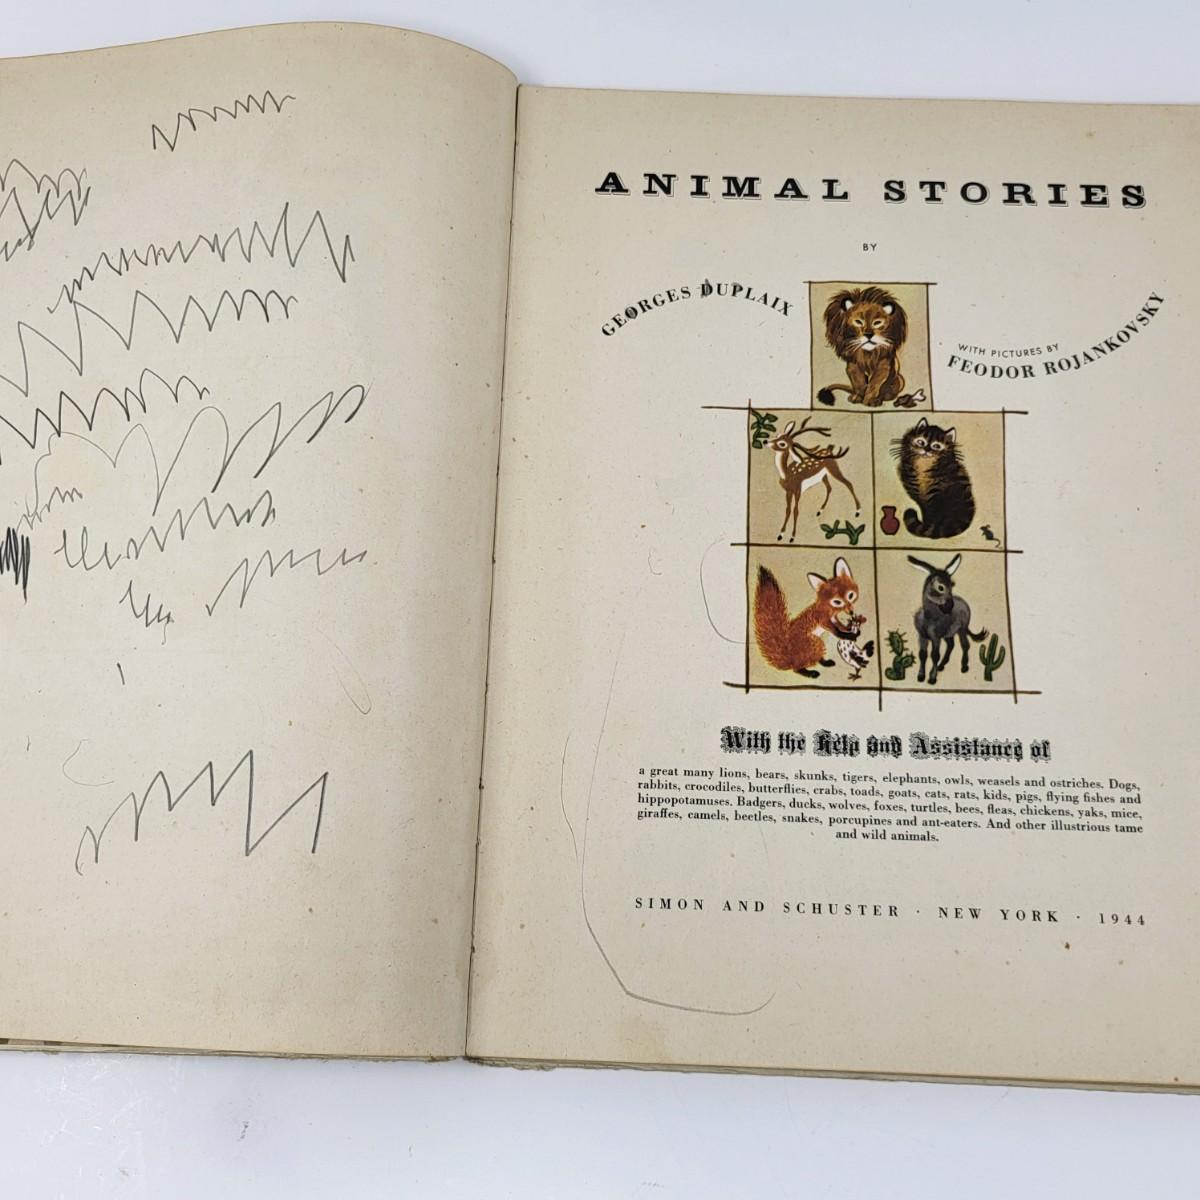 ANIMAL STORIES
BY
GEORGES DUPLAIX
WITH PICTURES BY
FEODOR ROJANKOVSKY
With the Help and Assistance of
a great many lions, bears, skunks, tigers, elephants, owls, weasels and ostriches. Dogs,
rabbits, crocodiles, butterflies, crabs, toads, goats, cats, rats, kids, pigs, flying fishes and
hippopotamuses. Badgers, ducks, wolves, foxes, turtles, bees, fleas, chickens, yaks, mice,
giraffes, camels, beetles, snakes, porcupines and ant-eaters. And other illustrious tame
and wild animals.
SIMON AND SCHUSTER · NEW YORK · 1944